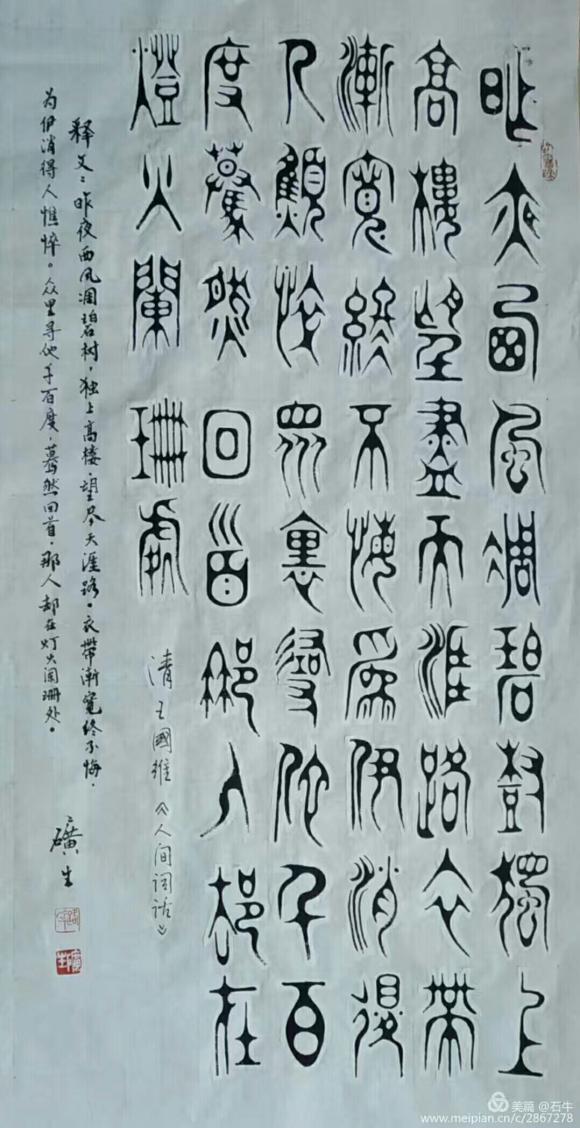 昨夜西風凋碧樹獨上
高樓望盡天涯路衣帶
漸寬終不悔爲伊消得
人顦悴眾裏尋他千百
度驀然回首那人却在
燈火闌珊處
清王國維《人间词话》
释文：昨夜西风凋碧树，独上高楼，望尽天涯路。衣帶渐宽终不悔，
为伊消得人憔悴。众里寻他千百度，蓦然回首，那人却在灯火阑珊处。
礦生
美篇 @石牛
www.meipian.cn/c/2867278